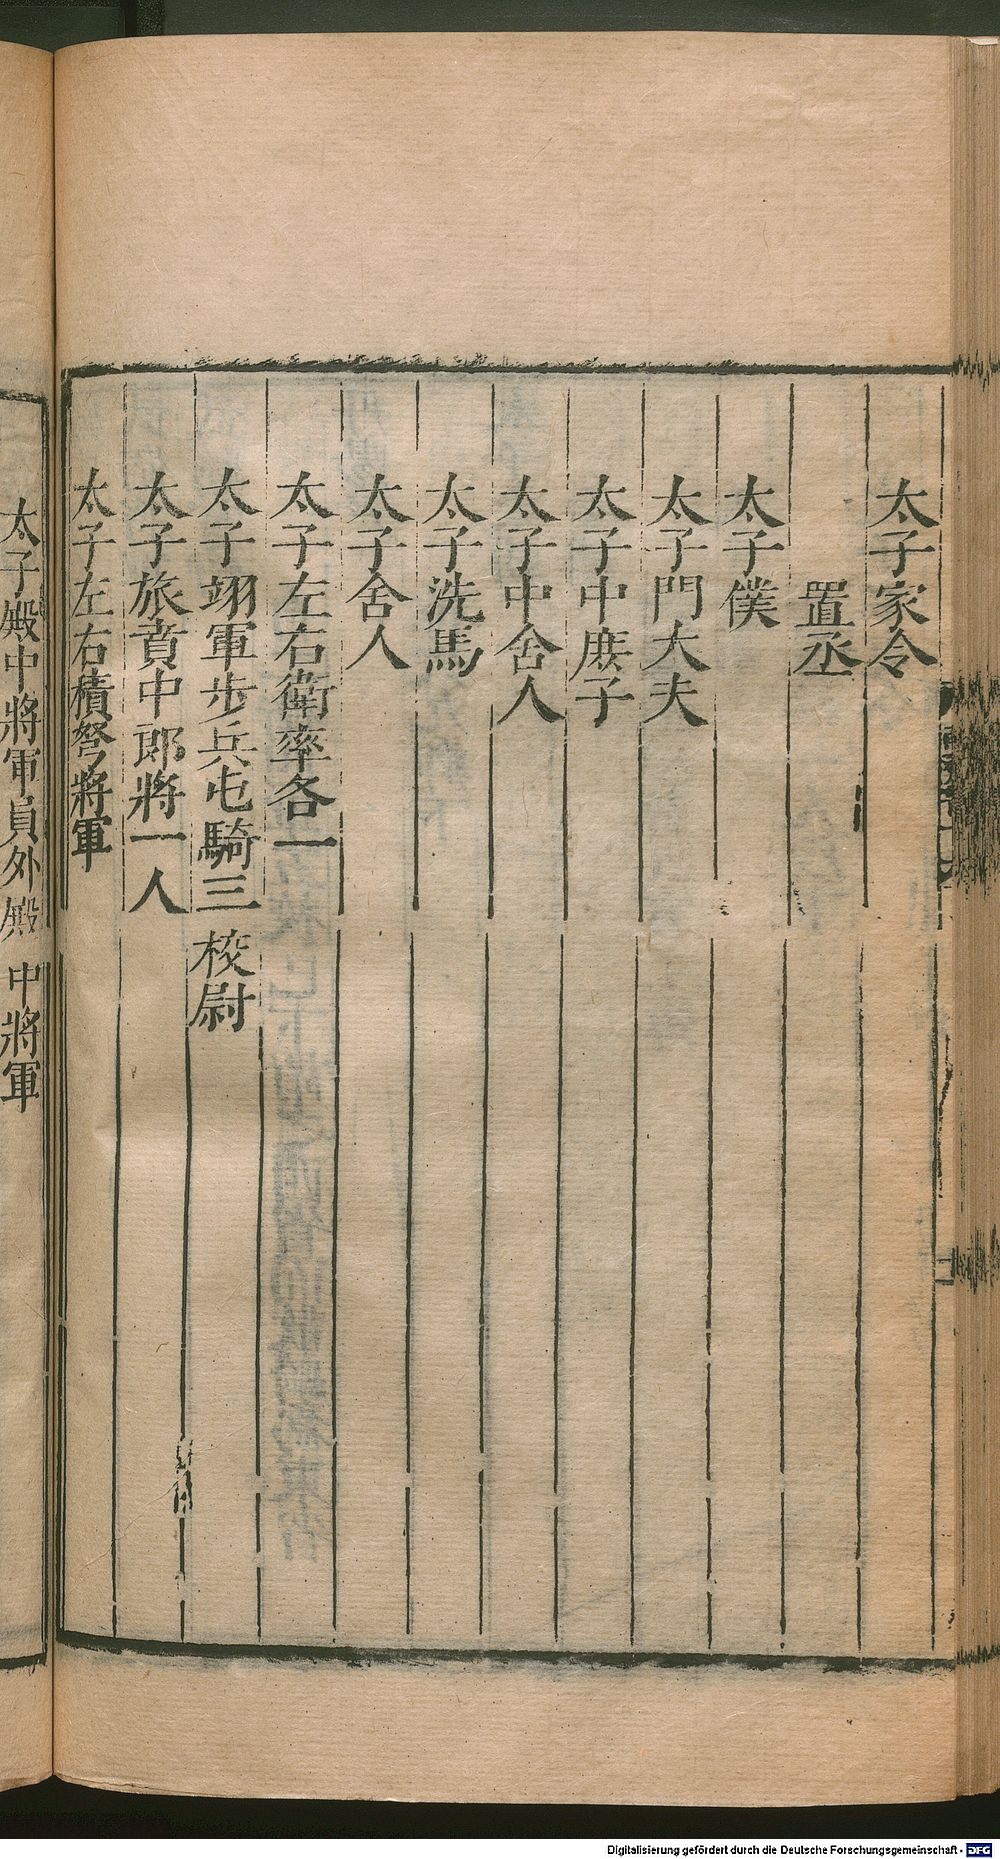 太子家令
置丞
太子僕
太子門大夫
太子中庶子
太子中舍人
太子洗馬
太子舍人
太子左右衛率各一
太子翊軍步兵屯騎三校尉
太子旅賁中郎將一人
太子左右積弩將軍
太子殿中將軍員外殿中將軍
Digitalisierung gefördert durch die Deutsche Forschungsgemeinschaft - DFG